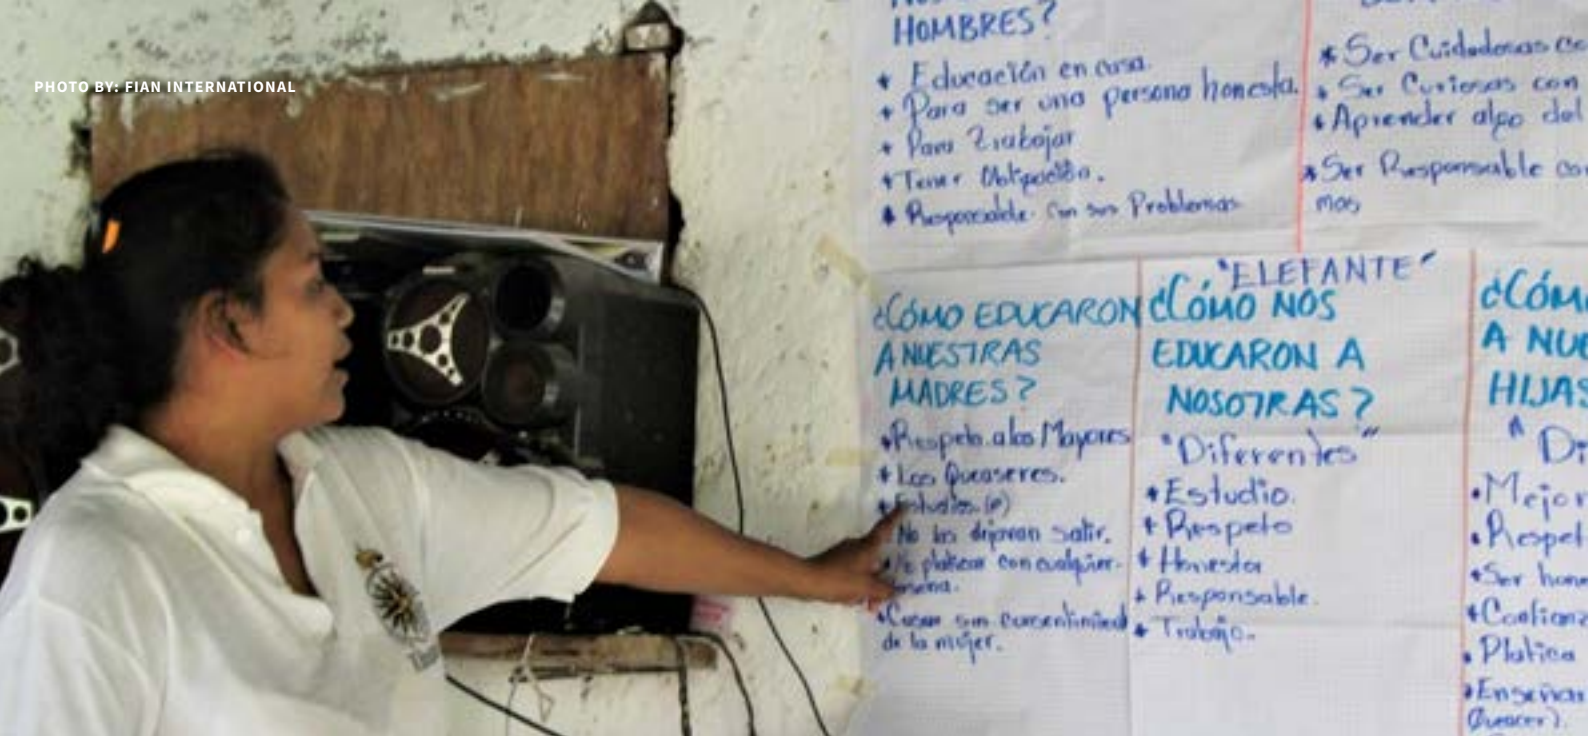 PHOTO BY: FIAN INTERNATIONAL
HOMBRES?
* Educación en casa.
* Para ser una persona honesta.
* Para trabajar
* Tener Obligación.
* Responsable con sus Problemas
* Ser Cuidadosas
* Ser Curiosas con
* Aprender algo del
* Ser Responsable
mos
"ELEFANTE"
¿CÓMO EDUCARON
A NUESTRAS
MADRES?
* Respeto a los Mayores
* Los Queaseres.
* Estudios. (o)
No las dejavan salir.
platicar con cualquier-
* Casar sin consentimient
de la mujer.
¿CÓMO NOS
EDUCARON A
NOSOTRAS?
"Diferentes"
* Estudio.
* Respeto
* Honesta
* Responsable.
* Trabajo.
¿CÓM
A NUE
HIJAS
"Di
• Mejor
• Respet
* Ser hone
* Confianz
• Platica
* Enseñar
Queacer).